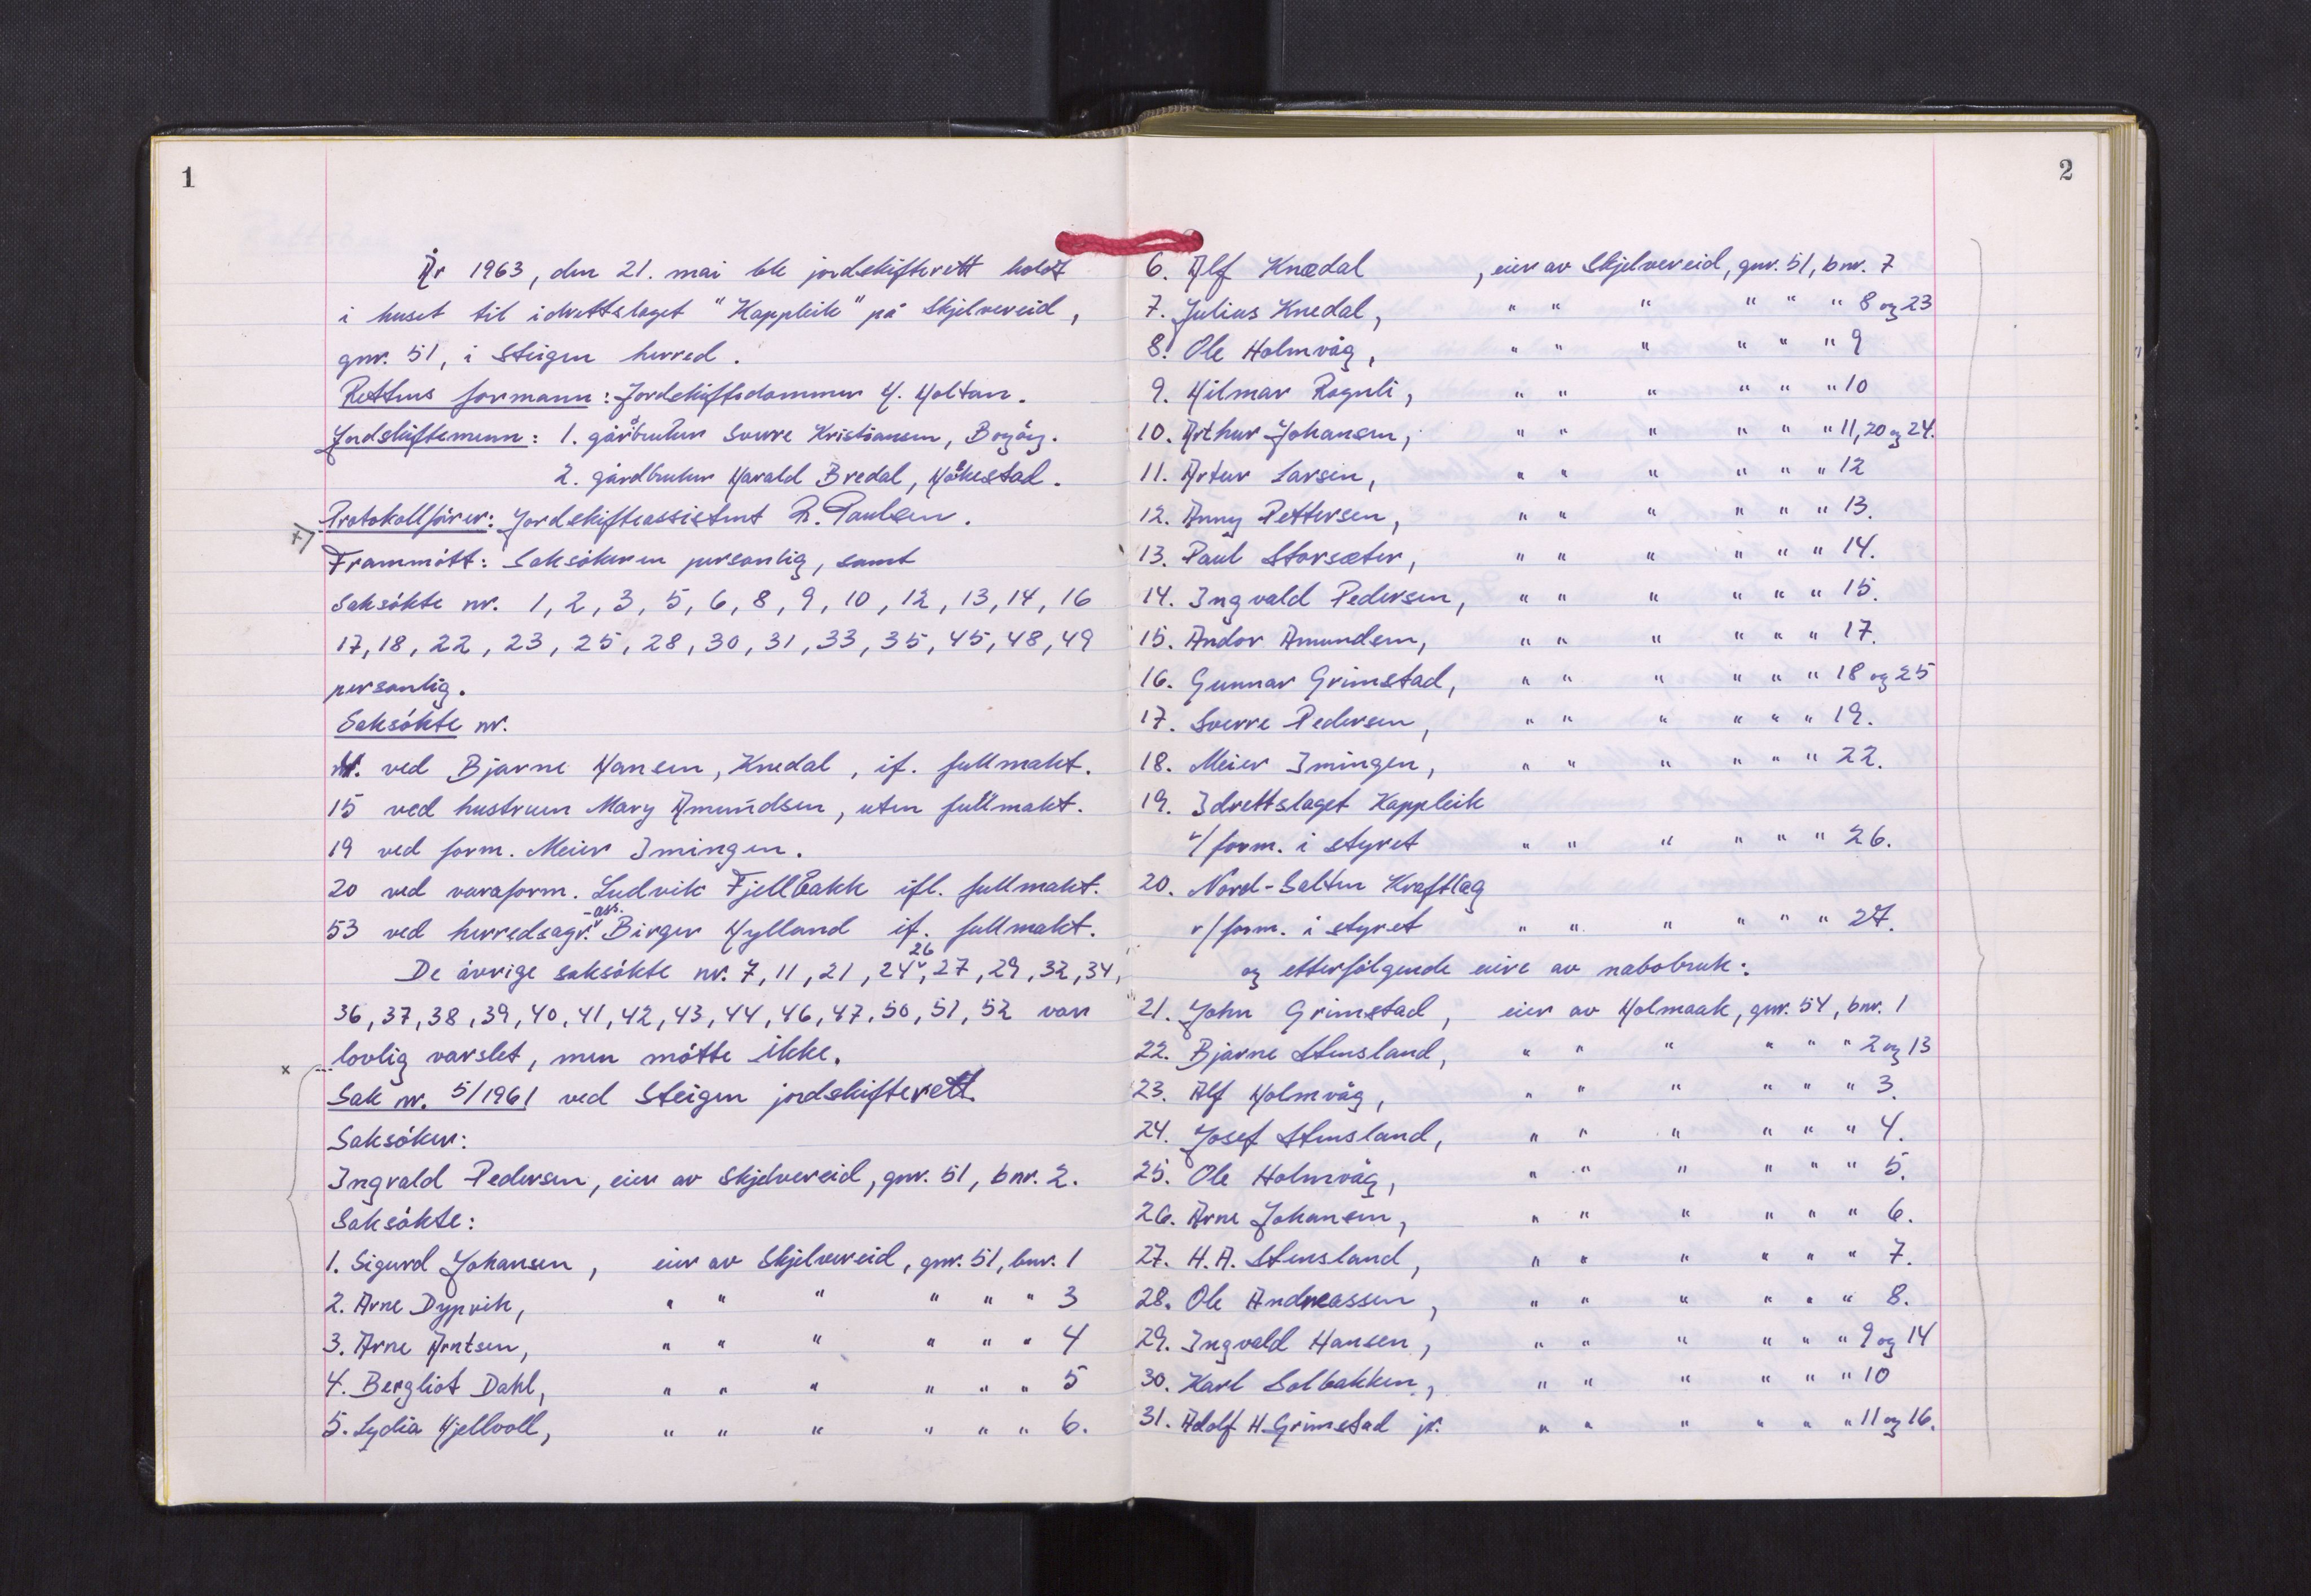 1
År 1963, den 21. mai ble jordskifterett holdt
i huset til idrettslaget "Kappleik" på Skjelvereid,
gnr. 51, i Steigen herred.
Rettens formann: Jordskiftedommer H. Holtan.
Jordskiftemenn: 1. gårdbruker Sverre Kristiansen, Bogöy.
2. gårdbruker Harald Bredal, Håkestad.
Protokollförer: Jordskifteassistent R. Paulsen.
Frammött: Saksökeren personlig, samt
Saksökte nr. 1, 2, 3, 5, 6, 8, 9, 10, 12, 13, 14, 16
17, 18, 22, 23, 25, 28, 30, 31, 33, 35, 45, 48, 49
personlig.
Saksökte nr.
4. ved Bjarne Hansen, Knedal, if. fullmakt.
15 ved hustruen Mary Amundsen, uten fullmakt.
19 ved form. Meier Imingen.
20 ved varaform. Ludvik Fjellbakk ifl. fullmakt.
53 ved herredsagr.-ass. Birger Hylland if. fullmakt.
De övrige saksökte nr. 7, 11, 21, 24, 26, 27, 29, 32, 34,
36, 37, 38, 39, 40, 41, 42, 43, 44, 46, 47, 50, 51, 52 var
x lovlig varslet, men mötte ikke.
Sak nr. 5/1961 ved Steigen jordskifterett.
Saksöker:
Ingvald Pedersen, eier av Skjelvereid, gnr. 51, bnr. 2.
Saksökte:
1. Sigurd Johansen, eier av Skjelvereid, gnr. 51, bnr. 1
2. Arne Dypvik, " " " " " " 3
3. Arne Arntsen, " " " " " " 4
4. Bergliot Dahl, " " " " " " 5
5. Lydia Hjellvoll, " " " " " " 6.
2
6. Alf Knædal , eier av Skjelvereid, gnr. 51, bnr. 7
7. Julius Knedal, " " " " " " 8 og 23
8. Ole Holmvåg, " " " " " " 9
9. Hilmar Rognli, " " " " " " 10
10. Arthur Johansen, " " " " " " 11, 20 og 24.
11. Artur Larsen, " " " " " " 12
12. Anny Pettersen, " " " " " " 13.
13. Paul Storsæter, " " " " " " 14.
14. Ingvald Pedersen, " " " " " " 15.
15. Andor Amundsen, " " " " " " 17.
16. Gunnar Grimstad, " " " " " " 18 og 25
17. Sverre Pedersen, " " " " " " 19.
18. Meier Imingen, " " " " " " 22.
19. Idrettslaget Kappleik
v/ form. i styret " " " " " " 26.
20. Nord-Salten Kraftlag
v/ form. i styret " " " " " " 27.
og etterfölgende eiere av nabobruk:
21. John Grimstad, eier av Holmaak, gnr. 54, bnr. 1
22. Bjarne Stensland, " " " " " " 2 og 13
23. Alf Holmvåg, " " " " " " 3.
24. Josef Stensland, " " " " " " 4.
25. Ole Holmvåg, " " " " " " 5.
26. Arne Johansen, " " " " " " 6.
27. H. A. Stensland, " " " " " " 7.
28. Ole Andreassen, " " " " " " 8.
29. Ingvald Hansen, " " " " " " 9 og 14
30. Karl Solbakken, " " " " " " 10
31. Adolf H. Grimstad jr. " " " " " " 11 og 16.